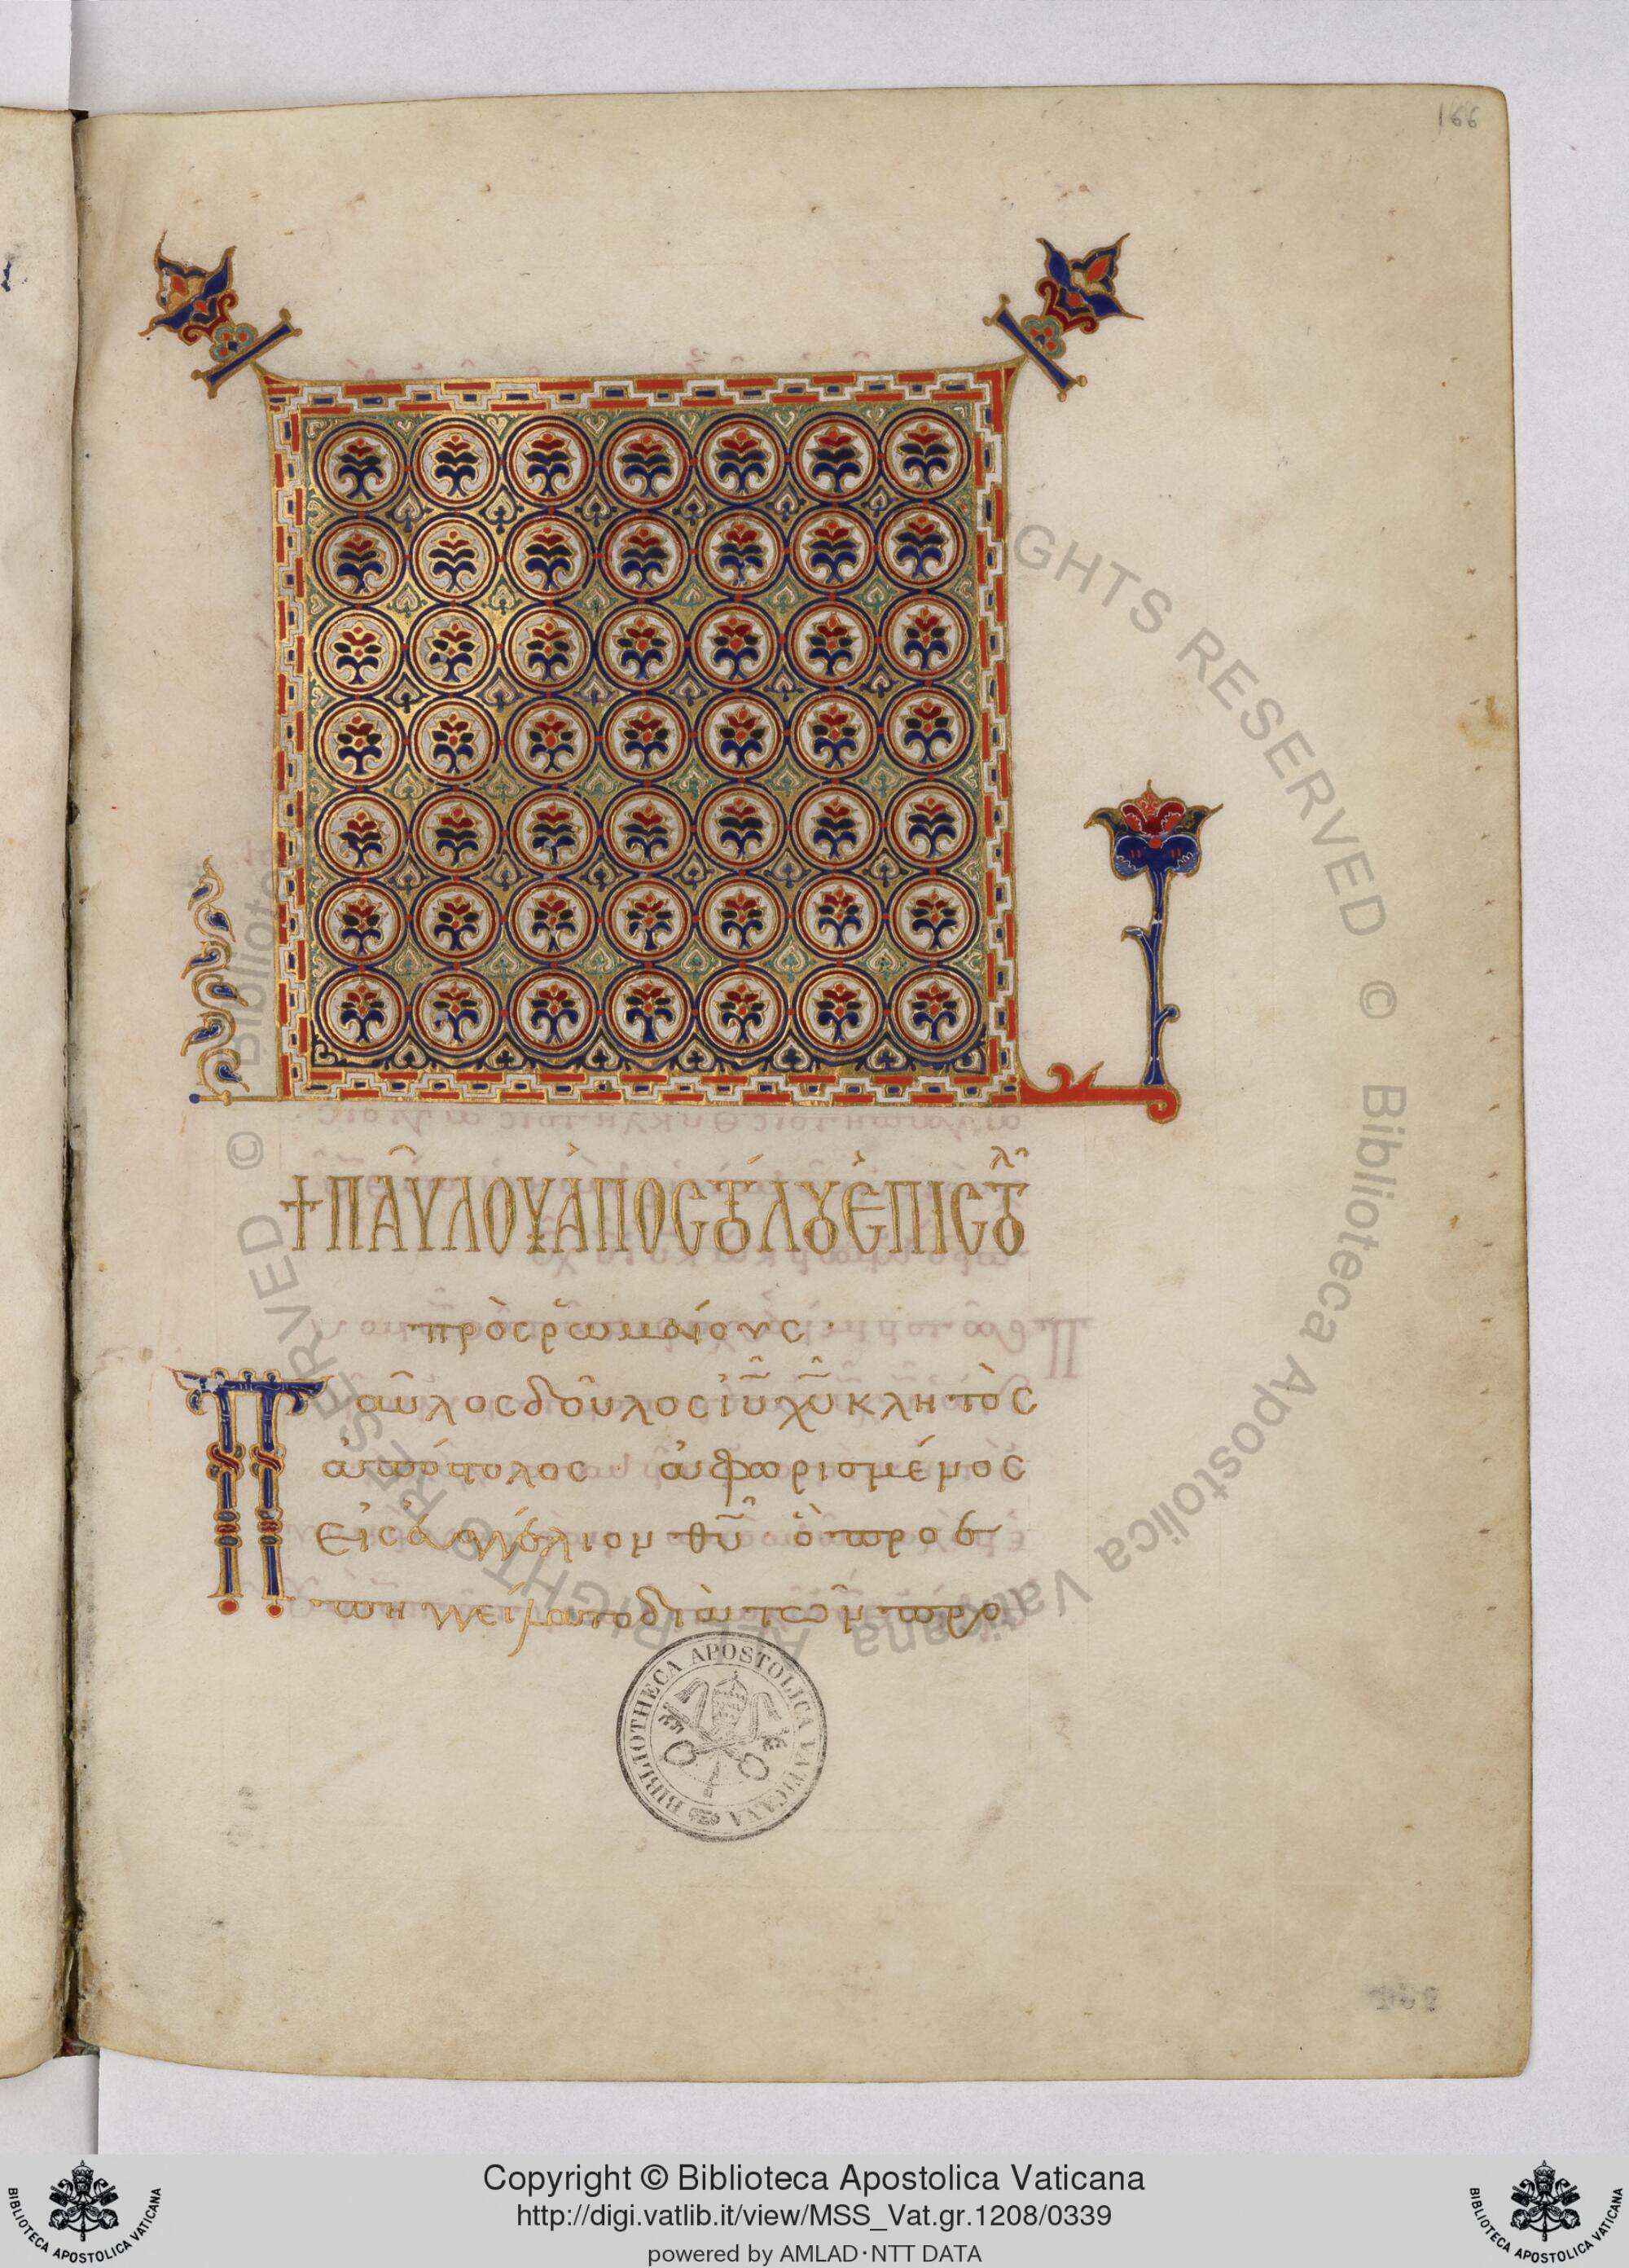 166
+ ΠΑῦΛΟΥ ἈΠΟϹΤόΛΟΥ ἘΠΙϹΤΟ^λ
πρὸς ῥωμαίους·
Παῦλος δοῦλος ἰῦ χῦ κλητὸς
ἀπόστολος· ἀφωρισμένος
εἰς εὐαγγέλιον θῦ· ὃ προε
πηγγείλατο διὰ τῶν προ
BIBLIOTHECA APOSTOLICA VATICANA
© Biblioteca Apostolica Vaticana ALL RIGHTS RESERVED © Biblioteca Apostolica Vaticana ALL RIGHTS RESERVED
Copyright © Biblioteca Apostolica Vaticana
http://digi.vatlib.it/view/MSS_Vat.gr.1208/0339
powered by AMLAD·NTT DATA
BIBLIOTECA APOSTOLICA VATICANA
BIBLIOTECA APOSTOLICA VATICANA